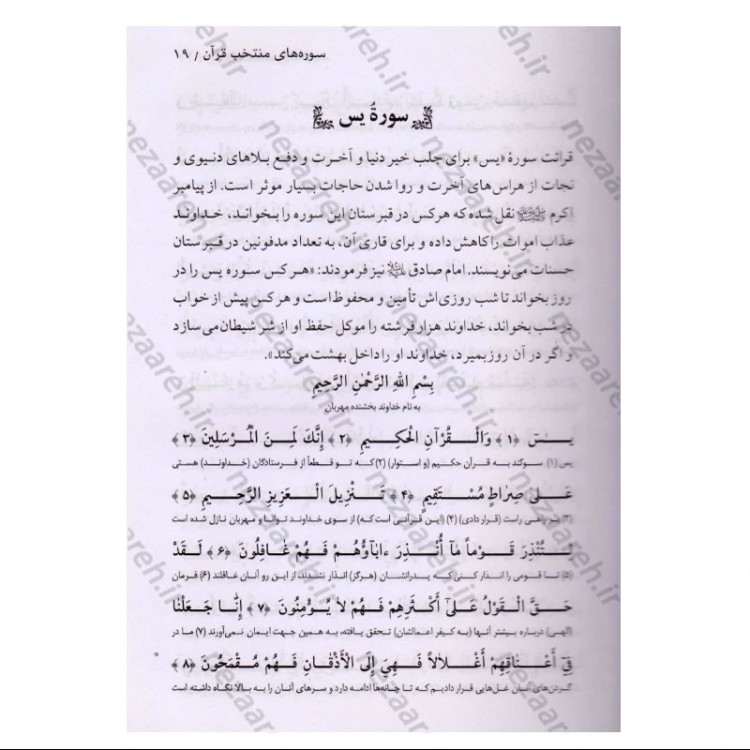 سوره‌های منتخب قرآن / ۱۹
سورهٔ یس
قرائت سورهٔ «یس» برای جلب خیر دنیا و آخرت و دفع بلاهای دنیوی و
نجات از هراس‌های آخرت و روا شدن حاجات بسیار موثر است. از پیامبر
اکرم ﷺ نقل شده که هر کس در قبرستان این سوره را بخواند، خداوند
عذاب اموات را کاهش داده و برای قاری آن، به تعداد مدفونین در قبرستان
حسنات می‌نویسند. امام صادق نیز فرمودند: «هر کس سوره یس را در
روز بخواند تا شب روزی‌اش تأمین و محفوظ است و هر کس پیش از خواب
در شب بخواند، خداوند هزار فرشته را موکل حفظ او از شر شیطان می‌سازد
و اگر در آن روز بمیرد، خداوند او را داخل بهشت می‌کند».
بِسْمِ اللهِ الرَّحْمٰنِ الرَّحِیمِ
به نام خداوند بخشنده مهربان
یسٓ ﴿۱﴾ وَالْقُرْآنِ الْحَکِیمِ ﴿۲﴾ إِنَّكَ لَمِنَ الْمُرْسَلِینَ ﴿۳﴾
یس (۱) سوگند به قرآن حکیم (و استوار) (۲) که تو قطعاً از فرستادگان (خداوند) هستی
عَلَىٰ صِرَاطٍ مُسْتَقِیمٍ ﴿۴﴾ تَنْزِیلَ الْعَزِیزِ الرَّحِیمِ ﴿۵﴾
(۳) بر راهی راست (قرار دادی) (۴) (این قرآنی است که) از سوی خداوند توانا و مهربان نازل شده است
لِتُنْذِرَ قَوْماً مَا أُنْذِرَ ءَابَاؤُهُمْ فَهُمْ غَافِلُونَ ﴿۶﴾ لَقَدْ
(۵) تا قومی را انذار کنی که پدرانشان (هرگز) انذار نشدند، از این رو آنان غافلند (۶) فرمان
حَقَّ الْقَوْلُ عَلَىٰ أَکْثَرِهِمْ فَهُمْ لاَ یُؤْمِنُونَ ﴿۷﴾ إِنَّا جَعَلْنَا
(الهی) درباره بیشتر آنها (به کیفر اعمالشان) تحقق یافته، به همین جهت ایمان نمی‌آورند (۷) ما در
فِی أَعْنَاقِهِمْ أَغْلاَلاً فَهِیَ إِلَى الْأَذْقَانِ فَهُمْ مُقْمَحُونَ ﴿۸﴾
گردن‌های آنان غل‌هایی قرار دادیم که تا چانه‌ها ادامه دارد و سرهای آنان را به بالا نگاه داشته است
nezaareh.ir